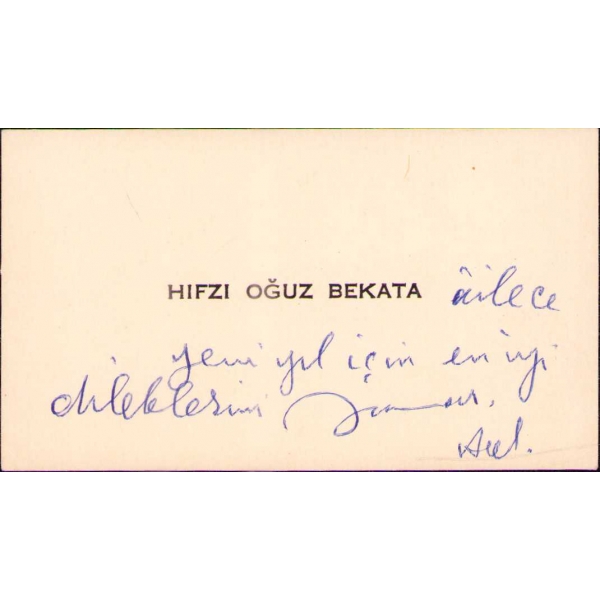 HIFZI OĞUZ BEKATA âilece
yeni yıl için en iyi
dileklerini sunar.